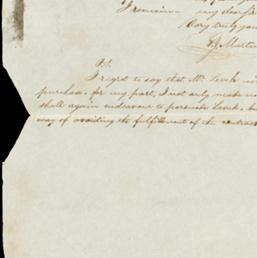 I remain my dear Sir
Very truly yours
Martin
P.S.
I regret to say that Mr
purchase. for my part, I not only make no
shall again endeavour to persuade
way of avoiding the fulfillment of the contract